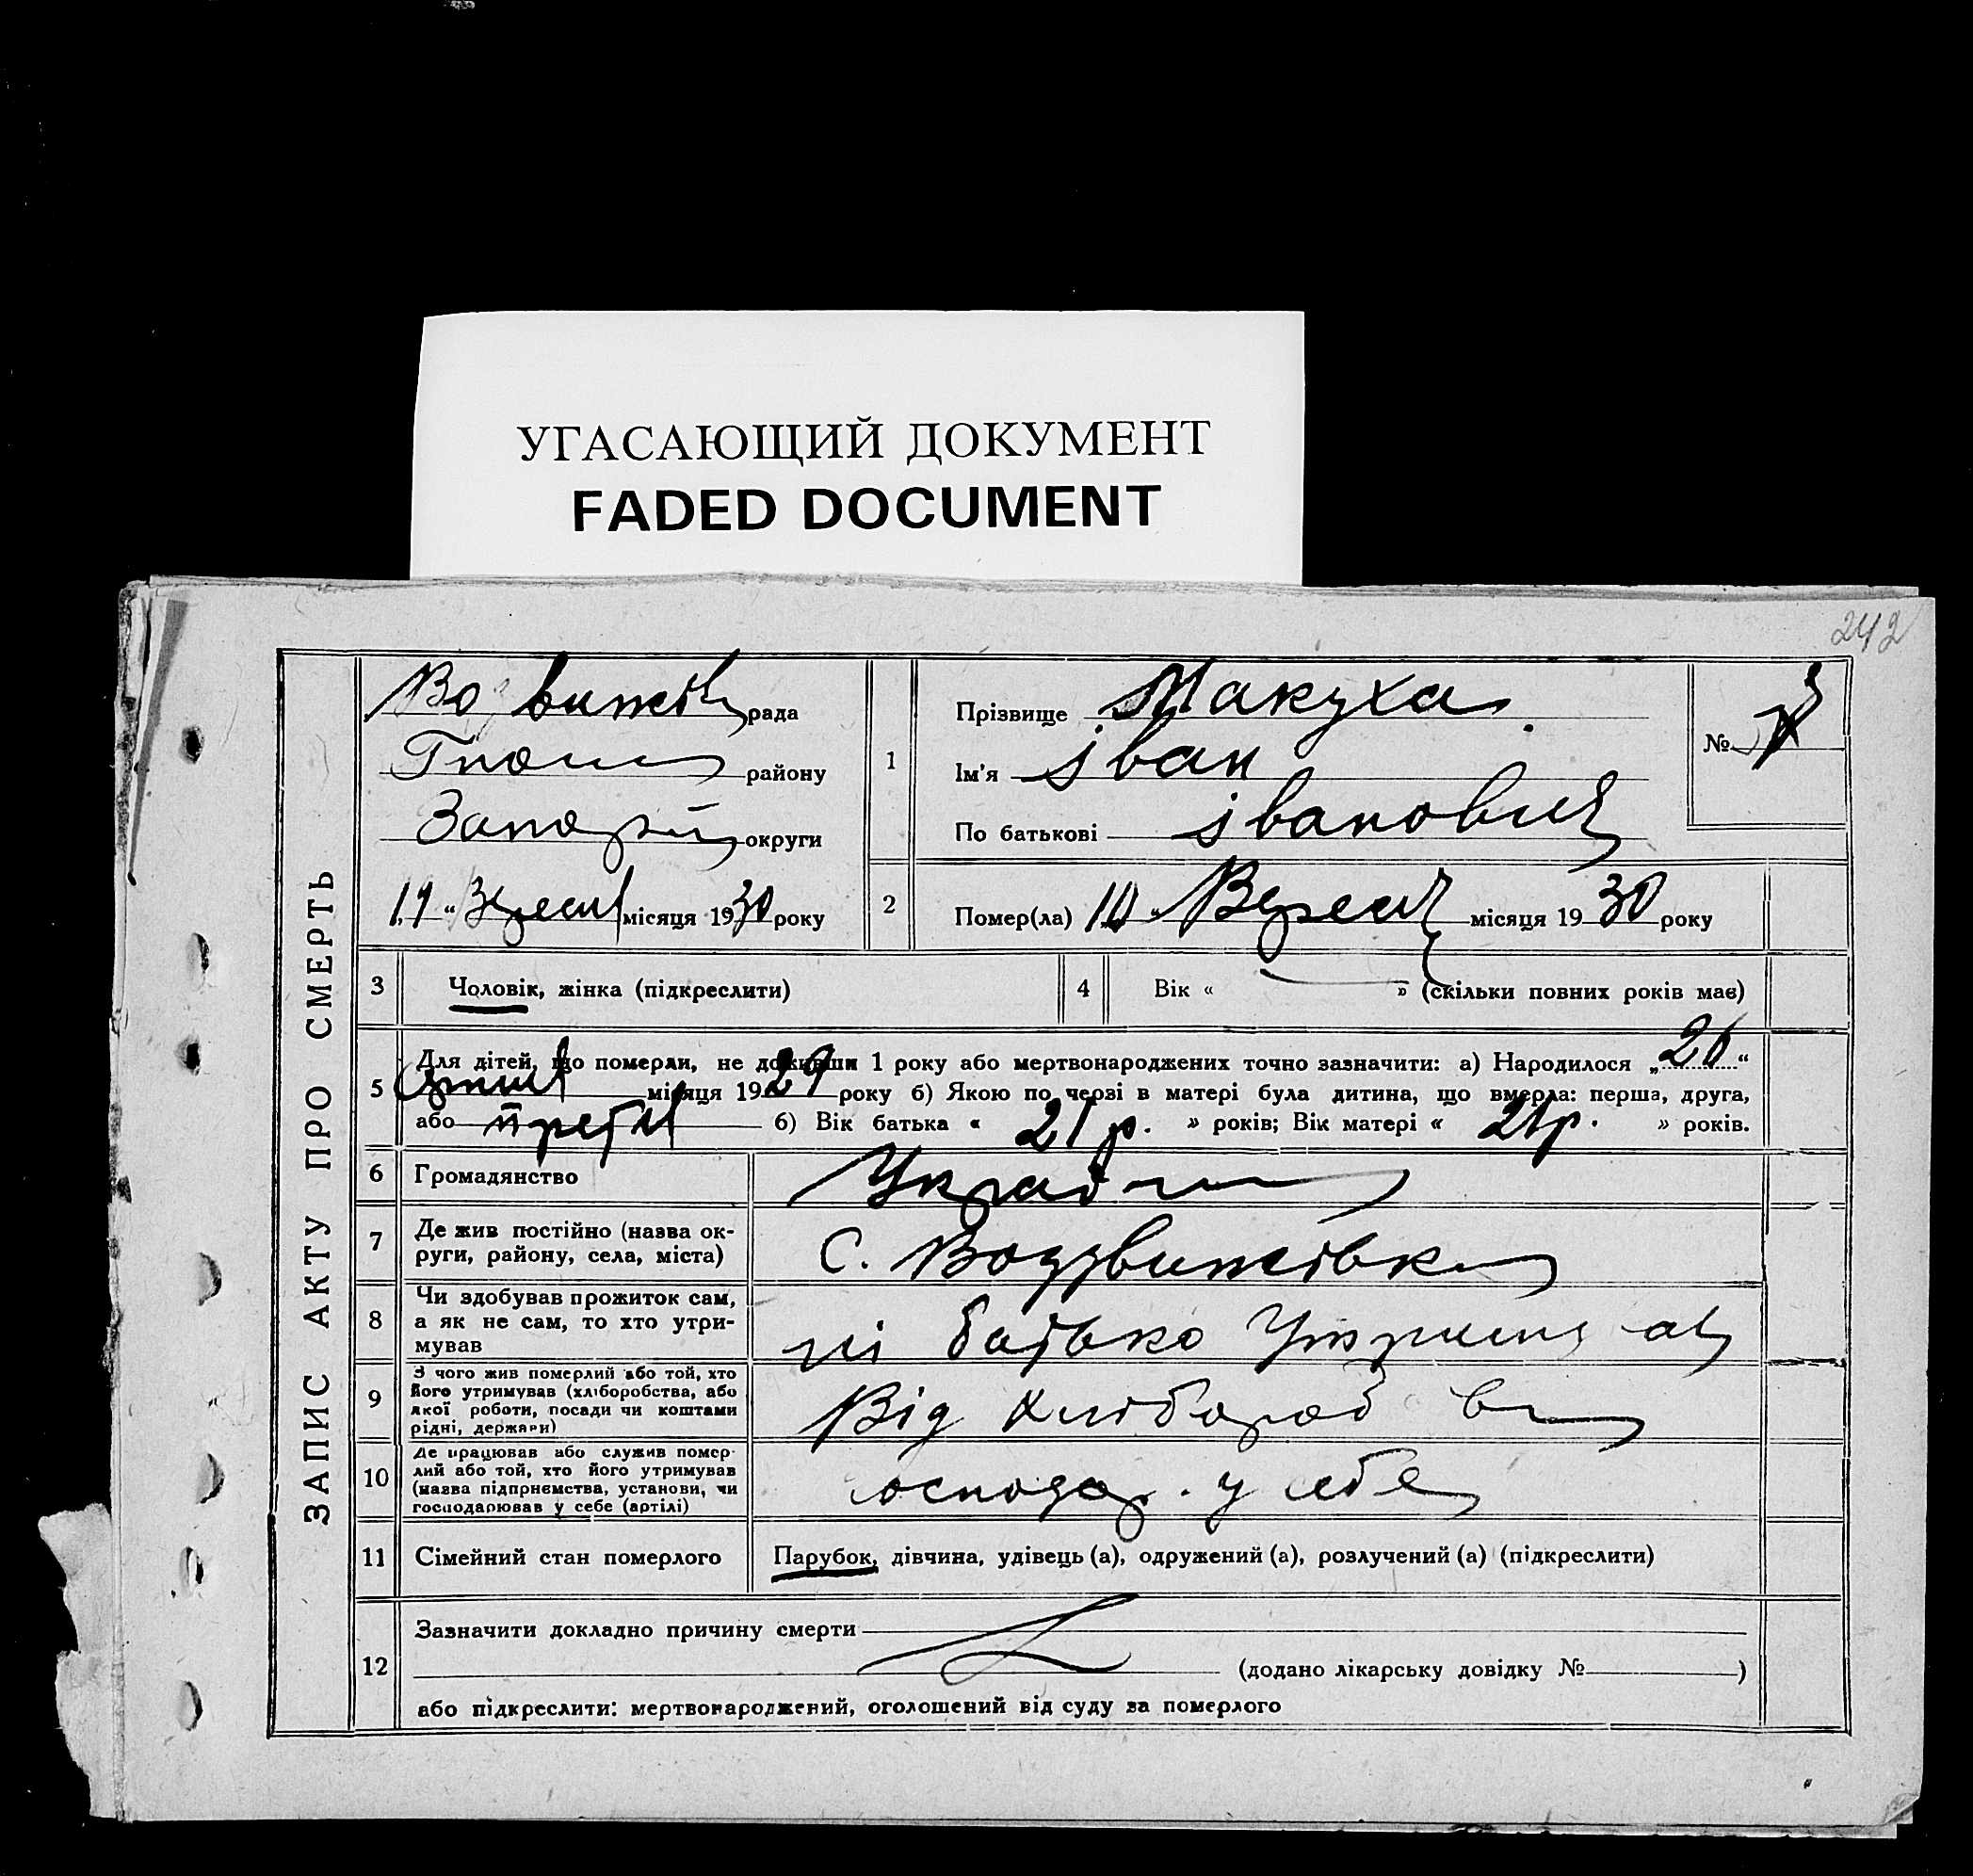 УГАСАЮЩИЙ ДОКУМЕНТ
FADED DOCUMENT
242
ЗАПИС АКТУ ПРО СМЕРТЬ
рада
району
округи
місяця 1930 року
1
Прізвище Макуха
Ім'я Іван
По батькові Іванович
№
2
Помер(ла) 10 місяця 1930 року
3 Чоловік, жінка (підкреслити)
4 Вік « » (скільки повних років має)
5 Для дітей, що померли, не доживши 1 року або мертвонароджених точно зазначити: а) Народилося „26“
місяця 1929 року б) Якою по черзі в матері була дитина, що вмерла: перша, друга,
або б) Вік батька « 21 р. » років; Вік матері « 21 р. » років.
6 Громадянство
7 Де жив постійно (назва округи, району, села, міста) С. Воздвижівка
8 Чи здобував прожиток сам,
а як не сам, то хто утри-
мував
ні батько
9 З чого жив померлий або той, хто
його утримував (хліборобства, або
якої роботи, посади чи коштами
рідні, держави)
Від
10 Де працював або служив помер-
лий або той, хто його утримував
(назва підприємства, установи, чи
господарював у себе (артілі)
господар. у себе
11 Сімейний стан померлого Парубок, дівчина, удівець (а), одружений (а), розлучений (а) (підкреслити)
12 Зазначити докладно причину смерти
(додано лікарську довідку № )
або підкреслити: мертвонароджений, оголошений від суду за померлого